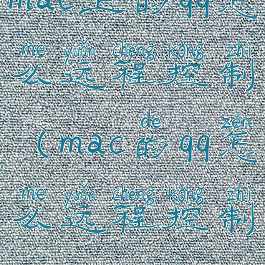 mac上的qq怎
me yuǎn chéng kòng zhì
么远程控制
de zěn
(mac的qq怎
me yuǎn chéng kòng zhì
么远程控制